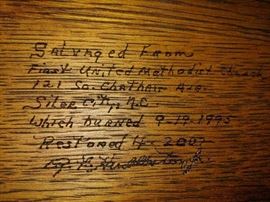 Salvaged From
First United Methodist Church
121 So. Chatham Ave.
Siler City, N.C.
Which burned 9-19-1995
Restored 4-2001